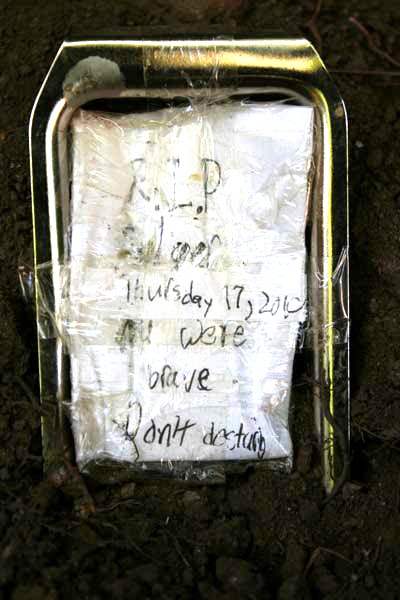 R.I.P
Thursday 17, 2010
were
brave
Don't desturb